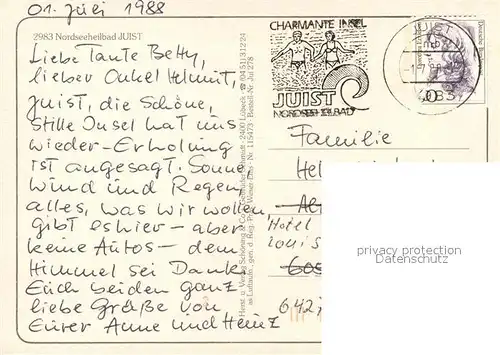 01. Juli 1988
2983 Nordseeheilbad JUIST
Liebe Tante Betty,
lieber Onkel Helmut,
Juist, die schöne,
stille Insel hat uns
wieder - Erholung
ist angesagt. Sonne,
Wind und Regen,
alles, was wir wollen,
gibt es hier - aber
keine Autos - dem
Himmel sei Dank.
Euch beiden ganz
liebe Grüße von
Eurer Anne und Heinz
CHARMANTE INSEL
JUIST
NORDSEEHEILBAD
Familie
Hel
Hotel
Louis
642
privacy protection
Datenschutz